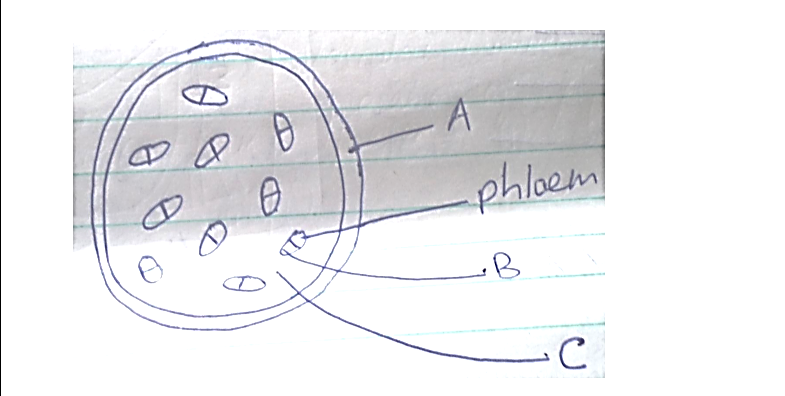 A
phloem
B
C